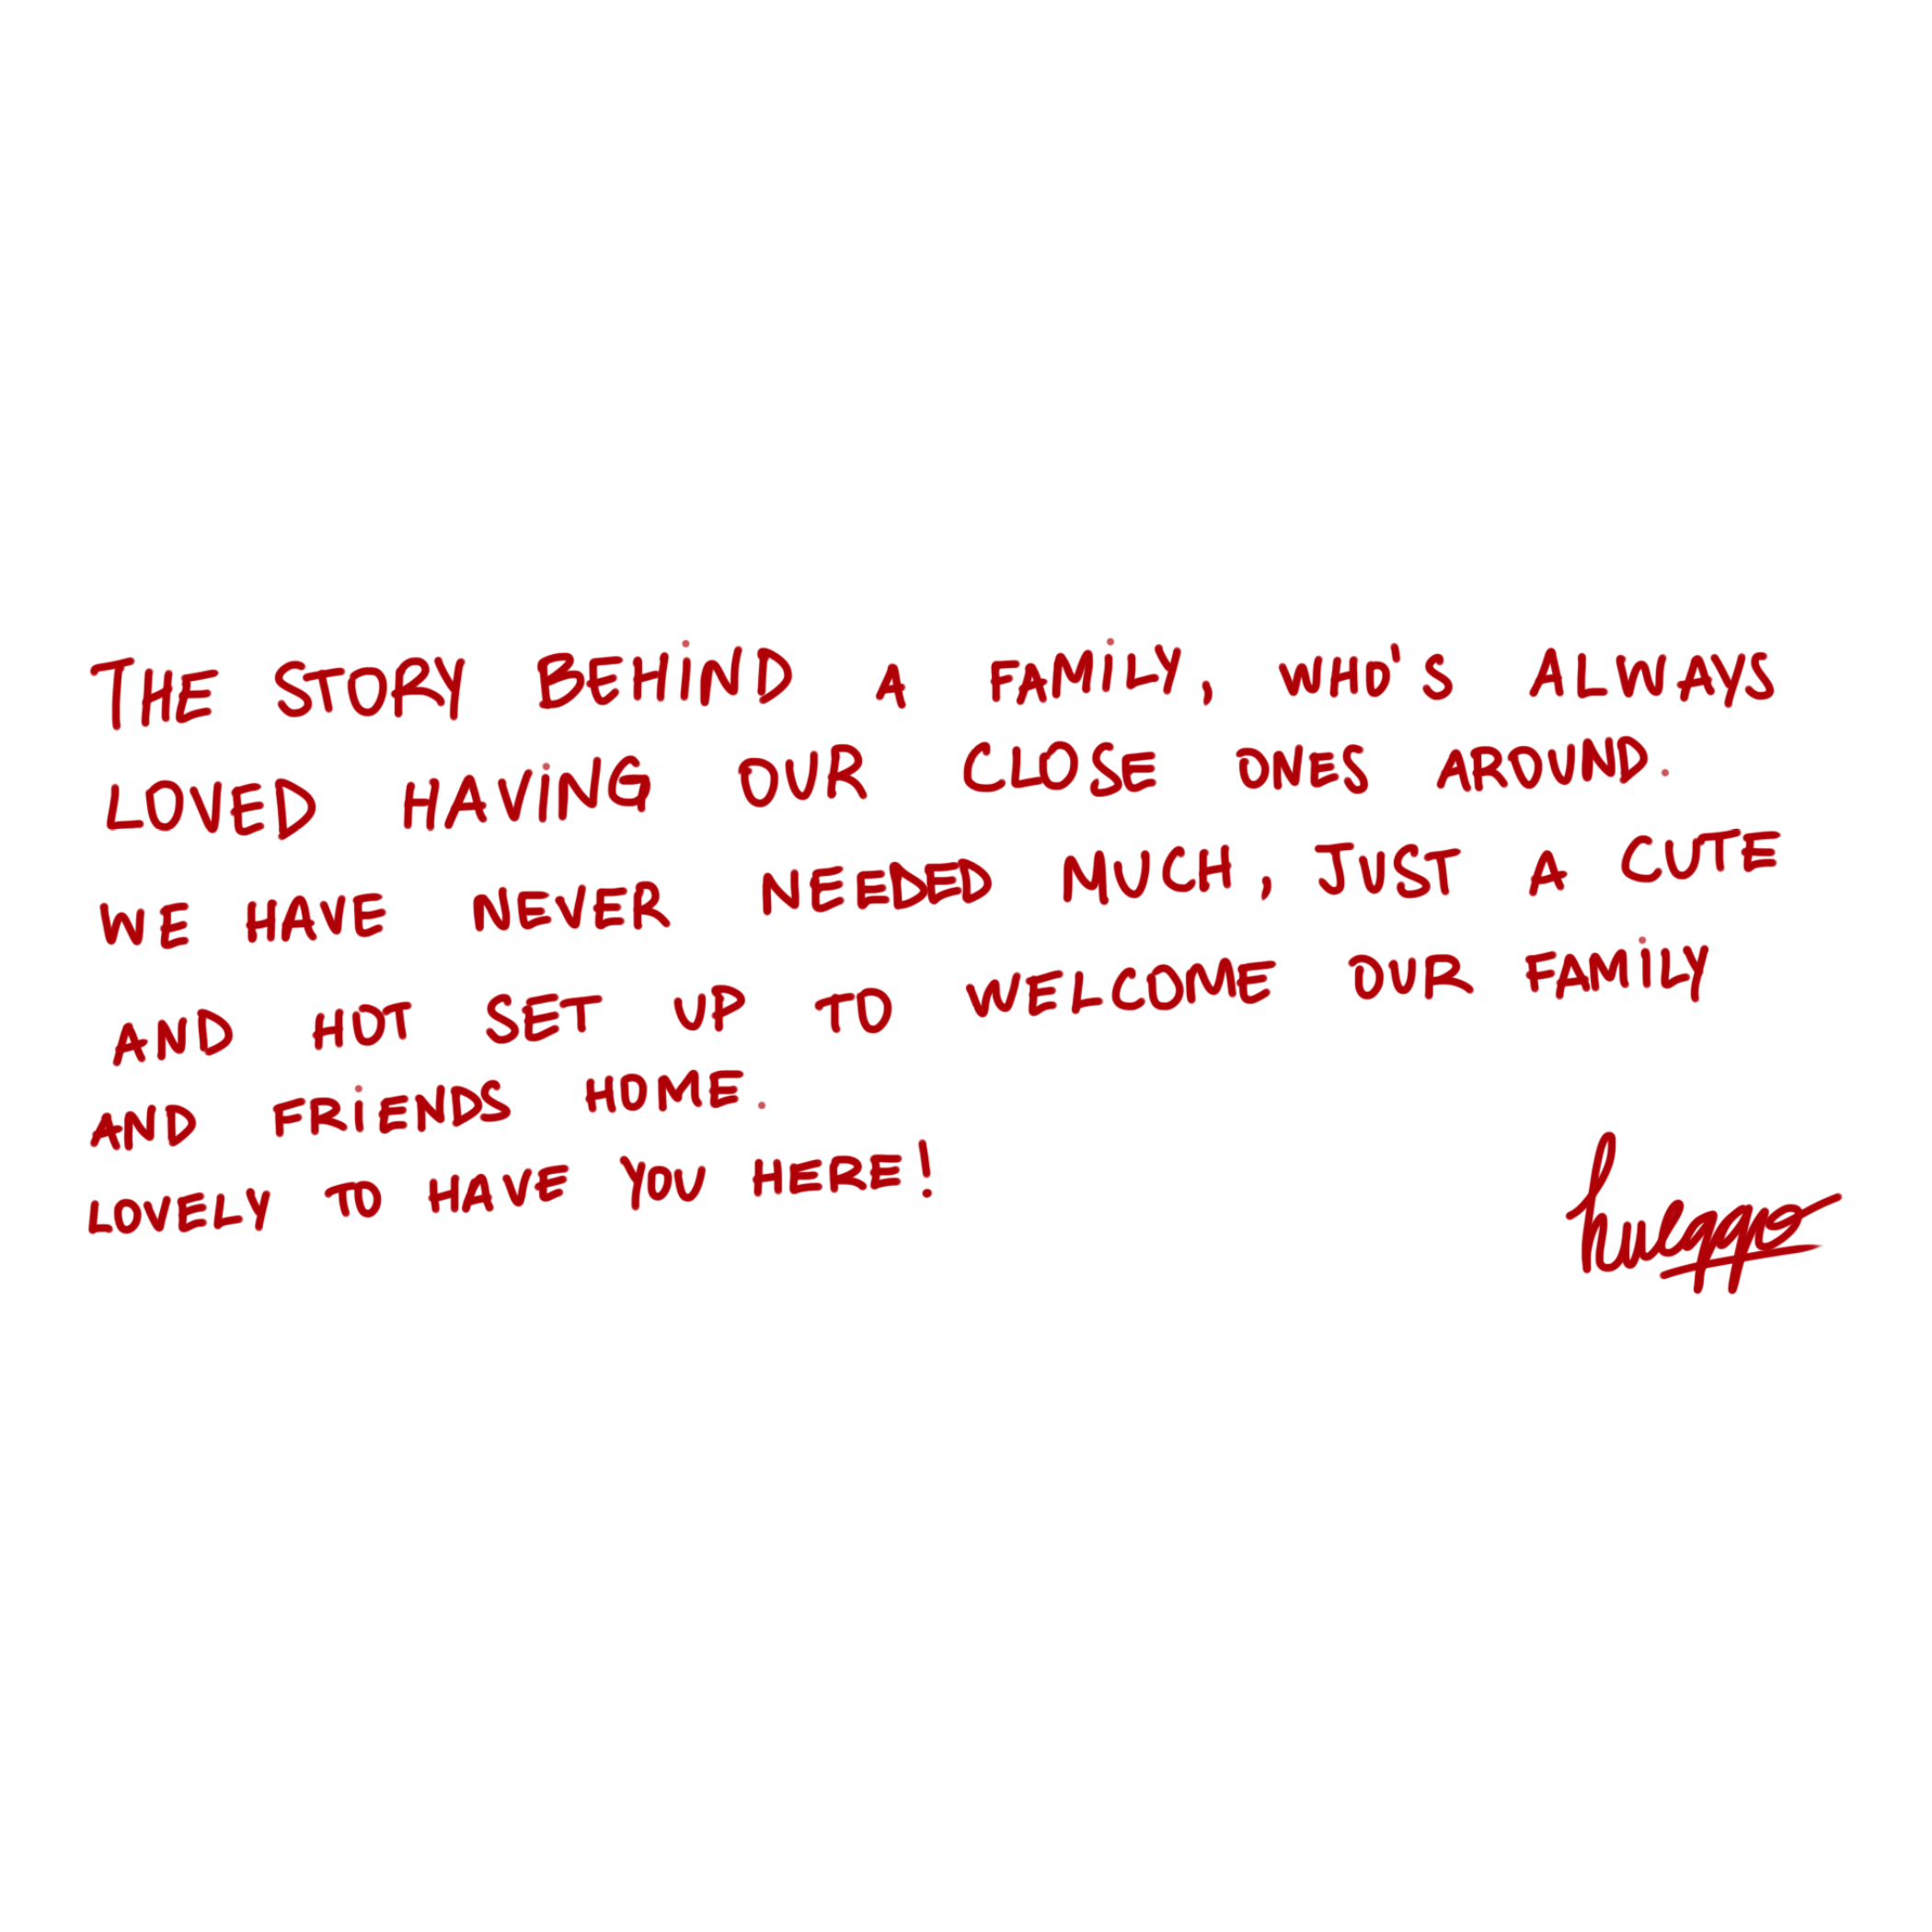 THE STORY BEHIND A FAMILY, WHO'S ALWAYS
LOVED HAVING OUR CLOSE ONES AROUND.
WE HAVE NEVER NEEDED MUCH, JUST A CUTE
AND HOT SET UP TO WELCOME OUR FAMILY
AND FRIENDS HOME.
LOVELY TO HAVE YOU HERE!